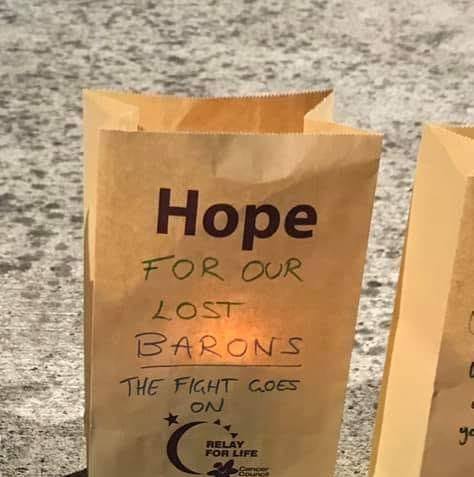 Hope
FOR OUR
LOST
BARONS
THE FIGHT GOES
ON
RELAY
FOR LIFE
Cancer
Council